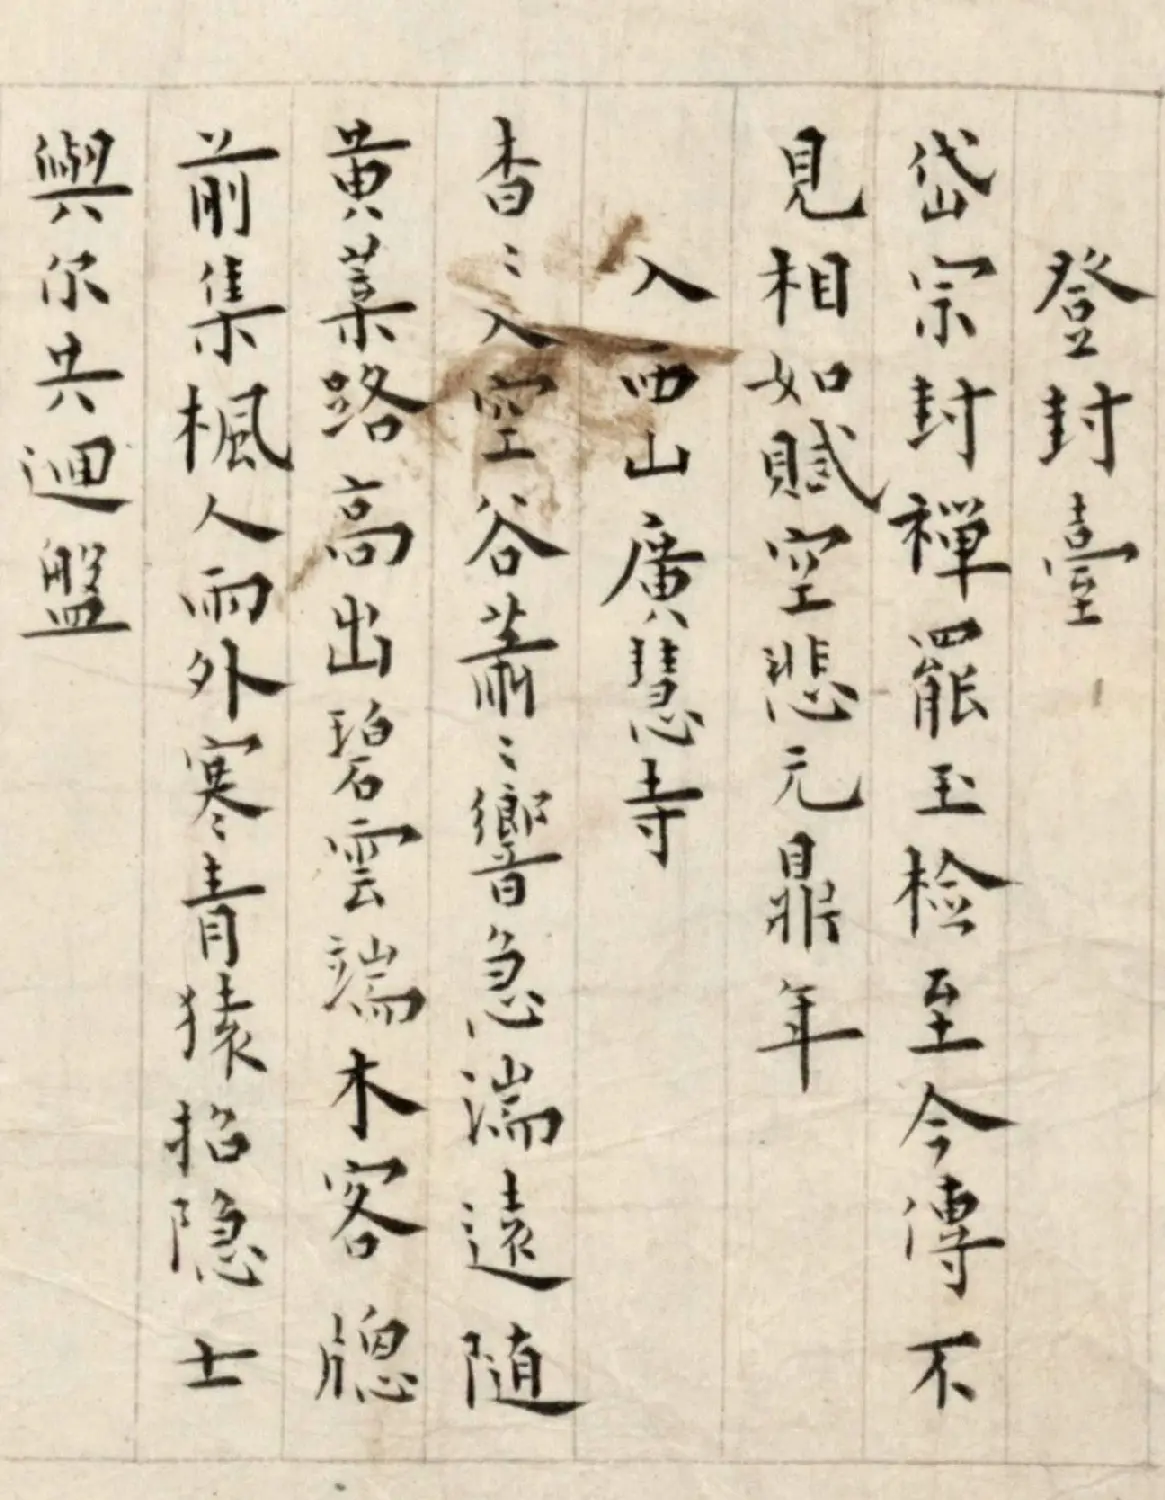 登封臺
岱宗封禪罷玉检至今傳不
見相如賦空悲元鼎年
入西山廣慧寺
杳〻入空谷蕭〻響急湍遠随
黄葉路高出碧雲端木客牕
前集楓人雨外寒青猿招隐士
與尔共迴盤